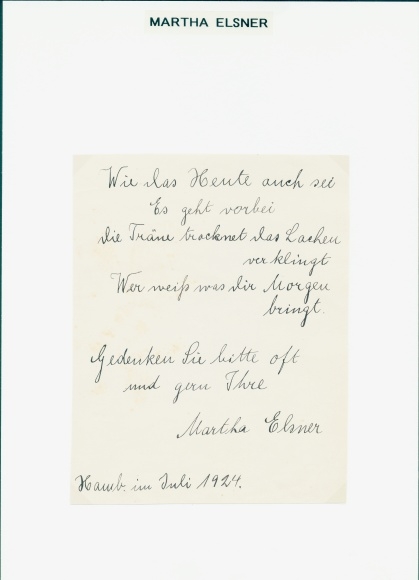 MARTHA ELSNER
Wie das Heute auch sei
Es geht vorbei
die Träne trocknet das Lachen
verklingt
Wer weiß was dir Morgen
bringt.
Gedenken Sie bitte oft
und gern Ihre
Martha Elsner
Hamb. im Juli 1924.